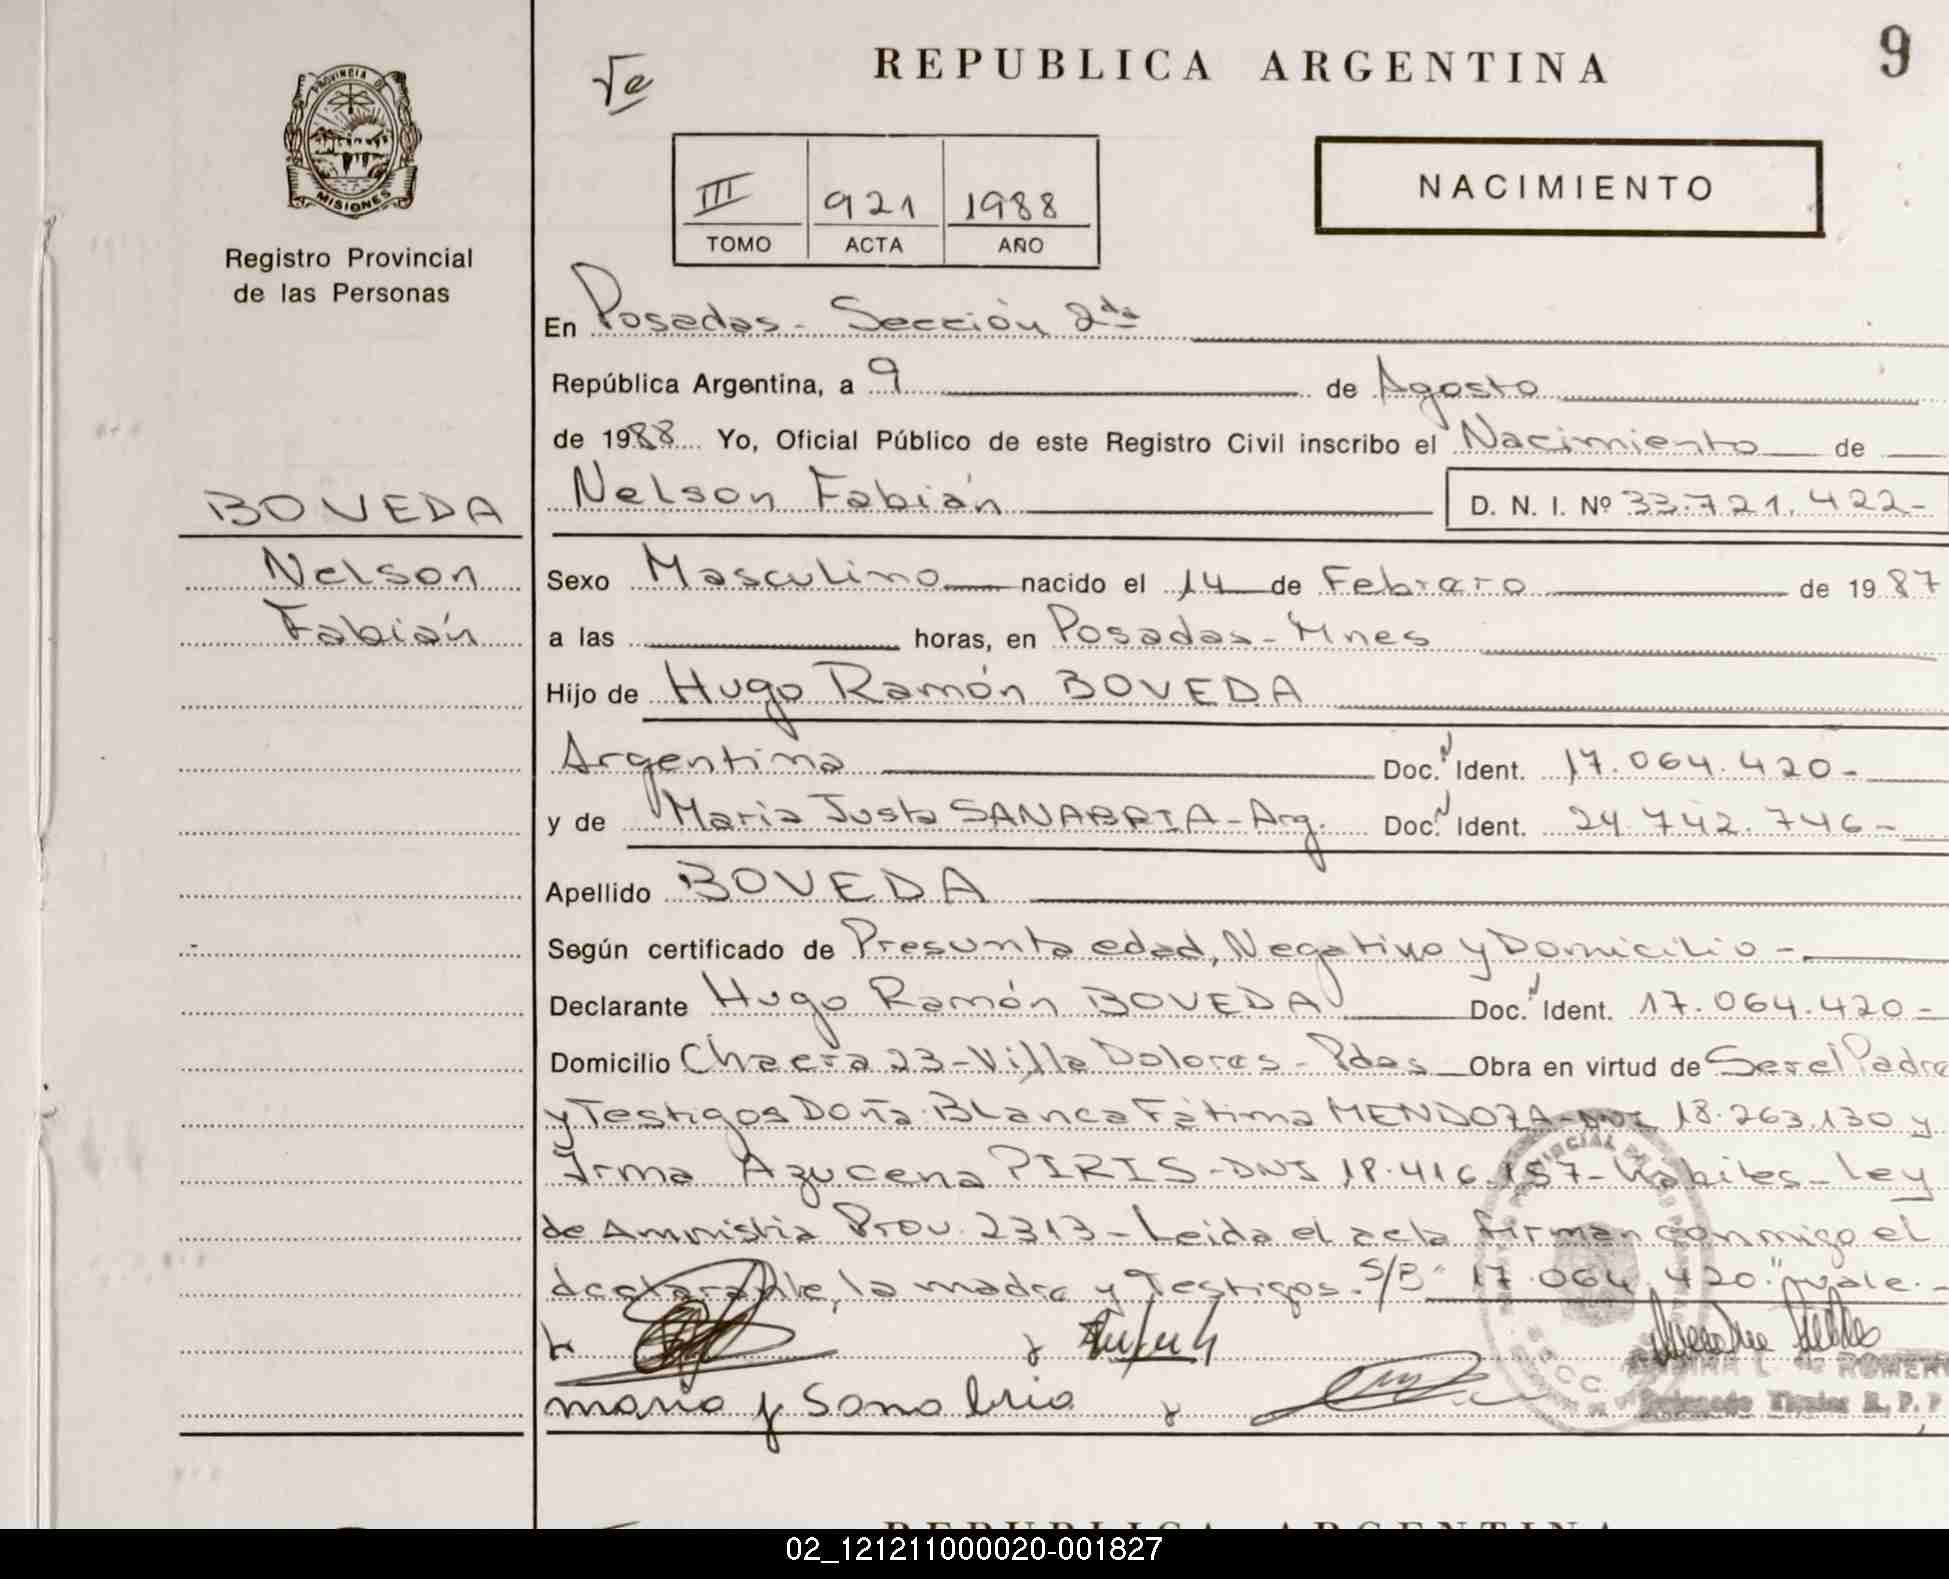 REPUBLICA ARGENTINA
9
PROVINCIA DE
MISIONES
Registro Provincial
de las Personas
III
921
1988
TOMO
ACTA
AÑO
NACIMIENTO
En Posadas - Sección 2da
República Argentina, a 9 de Agosto
de 1988 Yo, Oficial Público de este Registro Civil inscribo el Nacimiento de
BOVEDA
Nelson Fabián D. N. I. Nº 33.721.422-
Nelson
Fabián
Sexo Masculino nacido el 14 de Febrero de 1987
a las horas, en Posadas - Mnes
Hijo de Hugo Ramón BOVEDA
Argentina Doc. N Ident. 17.064.420-
y de Maria Justa SANABRIA - Arg. Doc. N Ident. 24.742.746-
Apellido BOVEDA
Según certificado de Presunta edad, Negativo y Domicilio -
Declarante Hugo Ramón BOVEDA Doc. N Ident. 17.064.420-
Domicilio Chacra 23 - Villa Dolores - Pdas Obra en virtud de Ser el Padre
y Testigos Doña Blanca Fátima MENDOZA - DNI 18.263.130 y
Irma Azucena PIRIS - DNI 18.416.157 - Habiles - Ley
de Amnistia Prov. 2313 - Leida el acta firman conmigo el
declarante, la madre y Testigos. S/B "17.064.420" vale. -
maria j Sanabria
ROMERO
R. P. P
REPUBLICA ARGENTINA
02_121211000020-001827